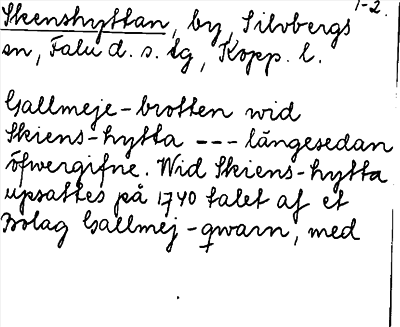 1-2.
Skenshyttan, by, Silvbergs
sn, Falu d. s. tg, Kopp. l.
Gallmeje-brotten wid
Skiens-hytta --- längesedan
öfwergifne. Wid Skiens-hytta
upsattes på 1740 talet af et
Bolag Gallmej-qwarn, med